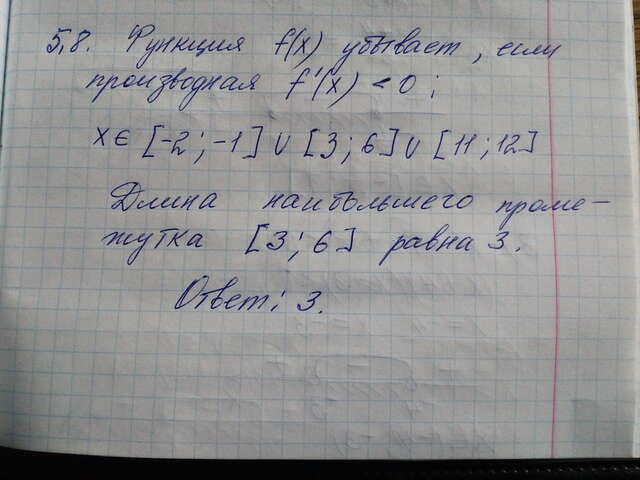 5,8. Функция f(x) убывает, если
производная f'(x) < 0;
x ∈ [-2; -1] ∪ [3; 6] ∪ [11; 12]
Длина наибольшего проме-
жутка [3; 6] равна 3.
Ответ: 3.